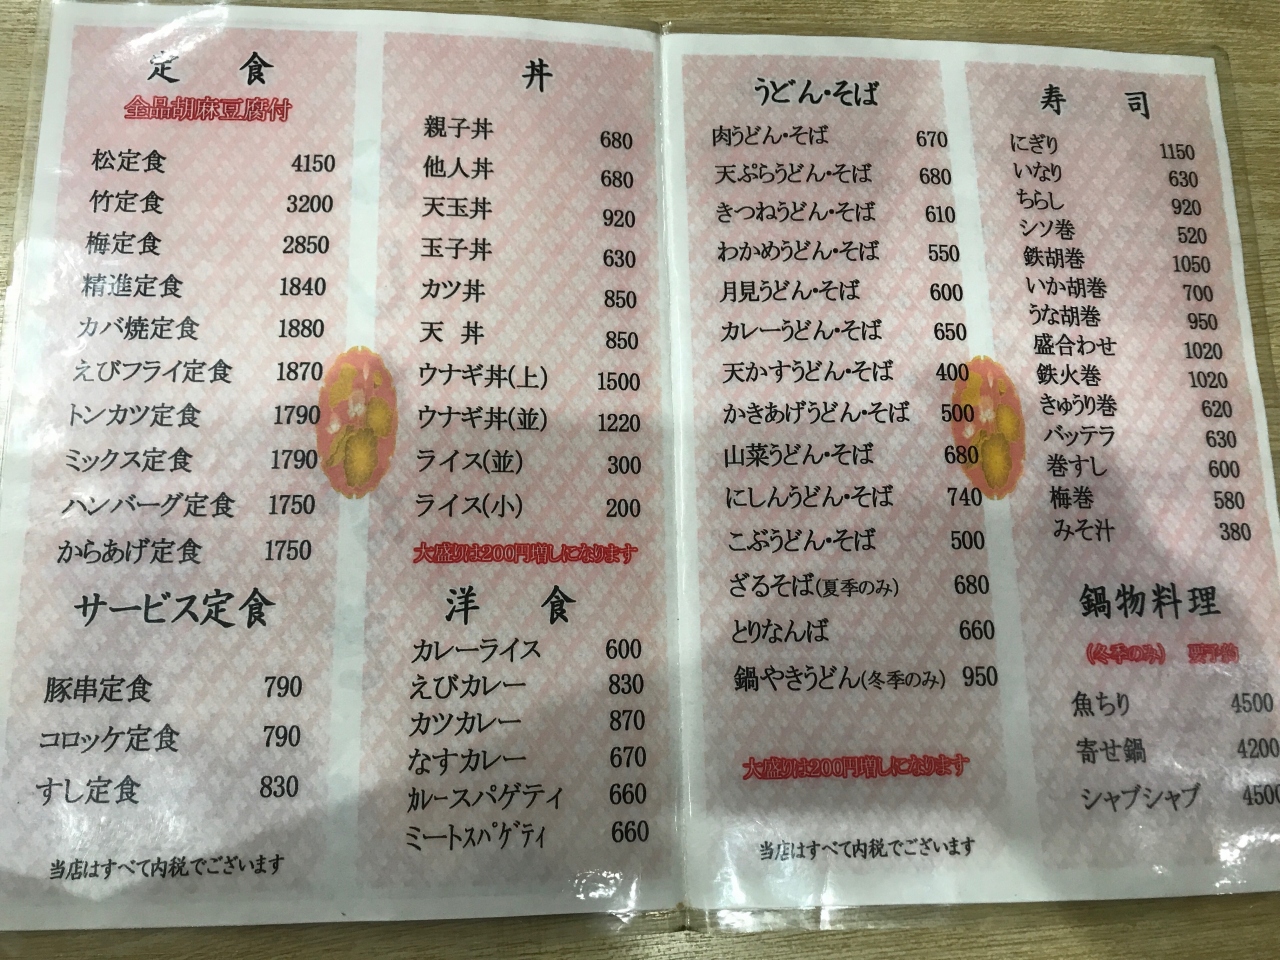 定 食
全品胡麻豆腐付
松定食 4150
竹定食 3200
梅定食 2850
精進定食 1840
カバ焼定食 1880
えびフライ定食 1870
トンカツ定食 1790
ミックス定食 1790
ハンバーグ定食 1750
からあげ定食 1750
サービス定食
豚串定食 790
コロッケ定食 790
すし定食 830
当店はすべて内税でございます
丼
親子丼 680
他人丼 680
天玉丼 920
玉子丼 630
カツ丼 850
天 丼 850
ウナギ丼(上) 1500
ウナギ丼(並) 1220
ライス(並) 300
ライス(小) 200
大盛りは200円増しになります
洋 食
カレーライス 600
えびカレー 830
カツカレー 870
なすカレー 670
カルースパゲティ 660
ミートスパゲティ 660
うどん・そば
肉うどん・そば 670
天ぷらうどん・そば 680
きつねうどん・そば 610
わかめうどん・そば 550
月見うどん・そば 600
カレーうどん・そば 650
天かすうどん・そば 400
かきあげうどん・そば 500
山菜うどん・そば 680
にしんうどん・そば 740
こぶうどん・そば 500
ざるそば(夏季のみ) 680
とりなんば 660
鍋やきうどん(冬季のみ) 950
大盛りは200円増しになります
当店はすべて内税でございます
寿 司
にぎり 1150
いなり 630
ちらし 920
シソ巻 520
鉄胡巻 1050
いか胡巻 700
うな胡巻 950
盛合わせ 1020
鉄火巻 1020
きゅうり巻 620
バッテラ 630
巻すし 600
梅巻 580
みそ汁 380
鍋物料理
(冬季のみ) 要予約
魚ちり 4500
寄せ鍋 4200
シャブシャブ 4500